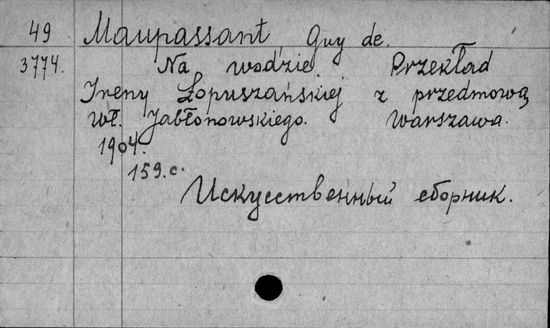 49 Maupassant Guy de.
3774. Na wodzie Przekład
Ireny Łopuszańskiej z przedmową
Wł. Jabłonowskiego. Warszawa.
1904.
159.c.
Искусственный сборник.